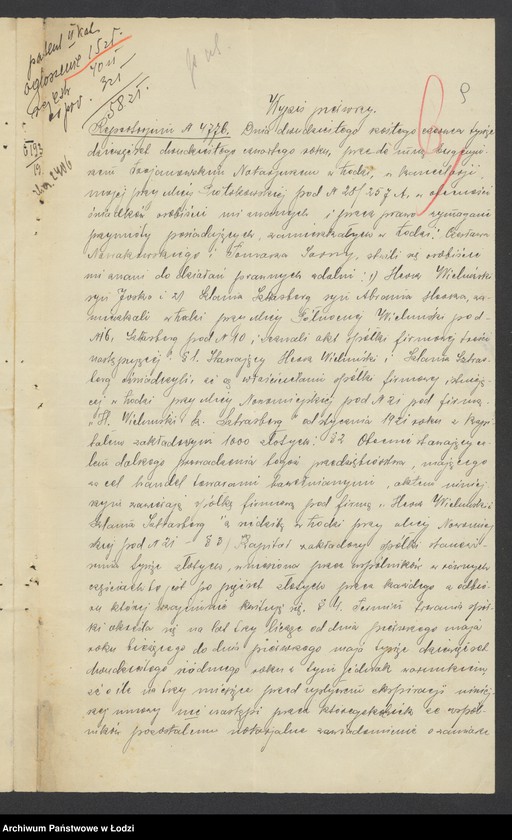 patent II kat.
ogłoszenie 15 zł.
40 zł
58 zł.
9
Wypis pierwszy.
Repertorjum N 477b. Dnia dwudziestego szóstego czerwca tysiąc
dziewięćset dwudziestego czwartego roku, przede mną
Notarjuszem w Łodzi, w kancelarji
mojej przy ulicy Piotrkowskiej pod N 28/257 A, w obecności
świadków osobiście mi znanych i przez prawo wymagane
przymioty posiadających, zamieszkałych w Łodzi: Gustawa
i Tomasza stawili się osobiście
mi znani do działań prawnych zdolni: 1) Hersz Wieluński
syn Josko i 2) Szlama Sztrasberg syn Abrama Hersza, za-
mieszkali w Łodzi przy ulicy Północnej Wieluński pod
N 6, Sztrasberg pod N 10, i zeznali akt spółki firmowej treści
następującej: § 1. Stawający Hersz Wieluński i Szlama Sztras-
berg oświadczyli, że są właścicielami spółki firmowej, istnieją-
cej w Łodzi przy ulicy Nowomiejskiej pod N 21 pod firmą
"H. Wieluński & Sztrasberg" od stycznia 1921 roku z kapi-
tałem zakładowym 1000 złotych. § 2. Obecnie stawający ce-
lem dalszego prowadzenia tegoż przedsiębiorstwa, mającego
za cel handel towarami bawełnianymi, aktem niniej-
szym zawierają spółkę firmową pod firmą "Hersz Wieluński i
Szlama Sztrasberg" z siedzibą w Łodzi przy ulicy Nowomiej-
skiej pod N 21. § 3. Kapitał zakładowy spółki stanowi
suma tysiąc złotych, wniesiona przez wspólników w równych
częściach to jest po pięćset złotych przez każdego z odbio-
ru której wzajemnie kwitują się. § 4. Termin trwania spół-
ki określa się na lat trzy licząc od dnia pierwszego maja
roku bieżącego do dnia pierwszego maja tysiąc dziewięćset
dwudziestego siódmego roku z tym jednak warunkiem
że o ile na trzy miesiące przed upływem ekspiracji niniej-
szej umowy nie nastąpi przez któregokolwiek ze wspól-
ników pozostałemu notarjalne zawiadomienie o zamiarze
Archiwum Państwowe w Łodzi